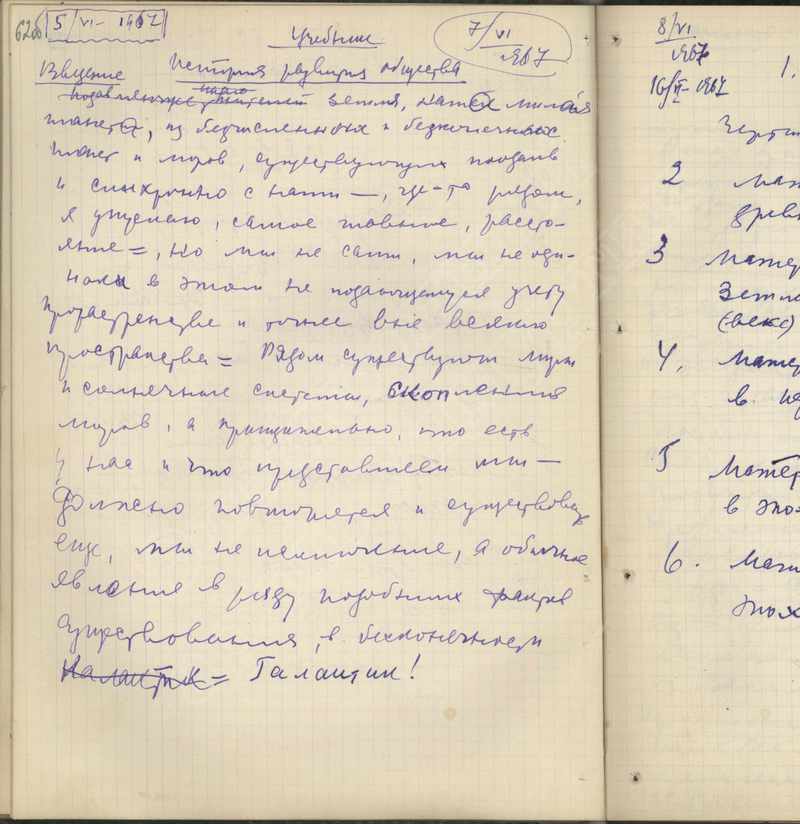 620
5/VI-1967
Учебник
7/VI
1967
Введение История развития общества
наша
земля, наша милая
планета, из бесчисленных и бесконечных
планет и миров, существующих
и синхронно с нами —, где-то рядом,
я думаю, самое главное, рассто-
яние =, но мы не сами, мы не оди-
ноки в этом не поддающемся учету
пространстве и точнее вне всякого
пространства = Рядом существуют миры
и солнечные системы, скопления
миров, а принципиально, что есть
у нас и что представляем мы —
должно повторяется и существовать
еще, мы не исключение, а обычное
явление в ряду подобных фактов
существования, в бесконечности
Галактик = Галактик!
8/VI
1967
16/VI-1967
1.
2 мат
древн
3 Матер
Земл
(веке)
4. Матер
в
5 Матер
в эпо
6. Мат
эпох